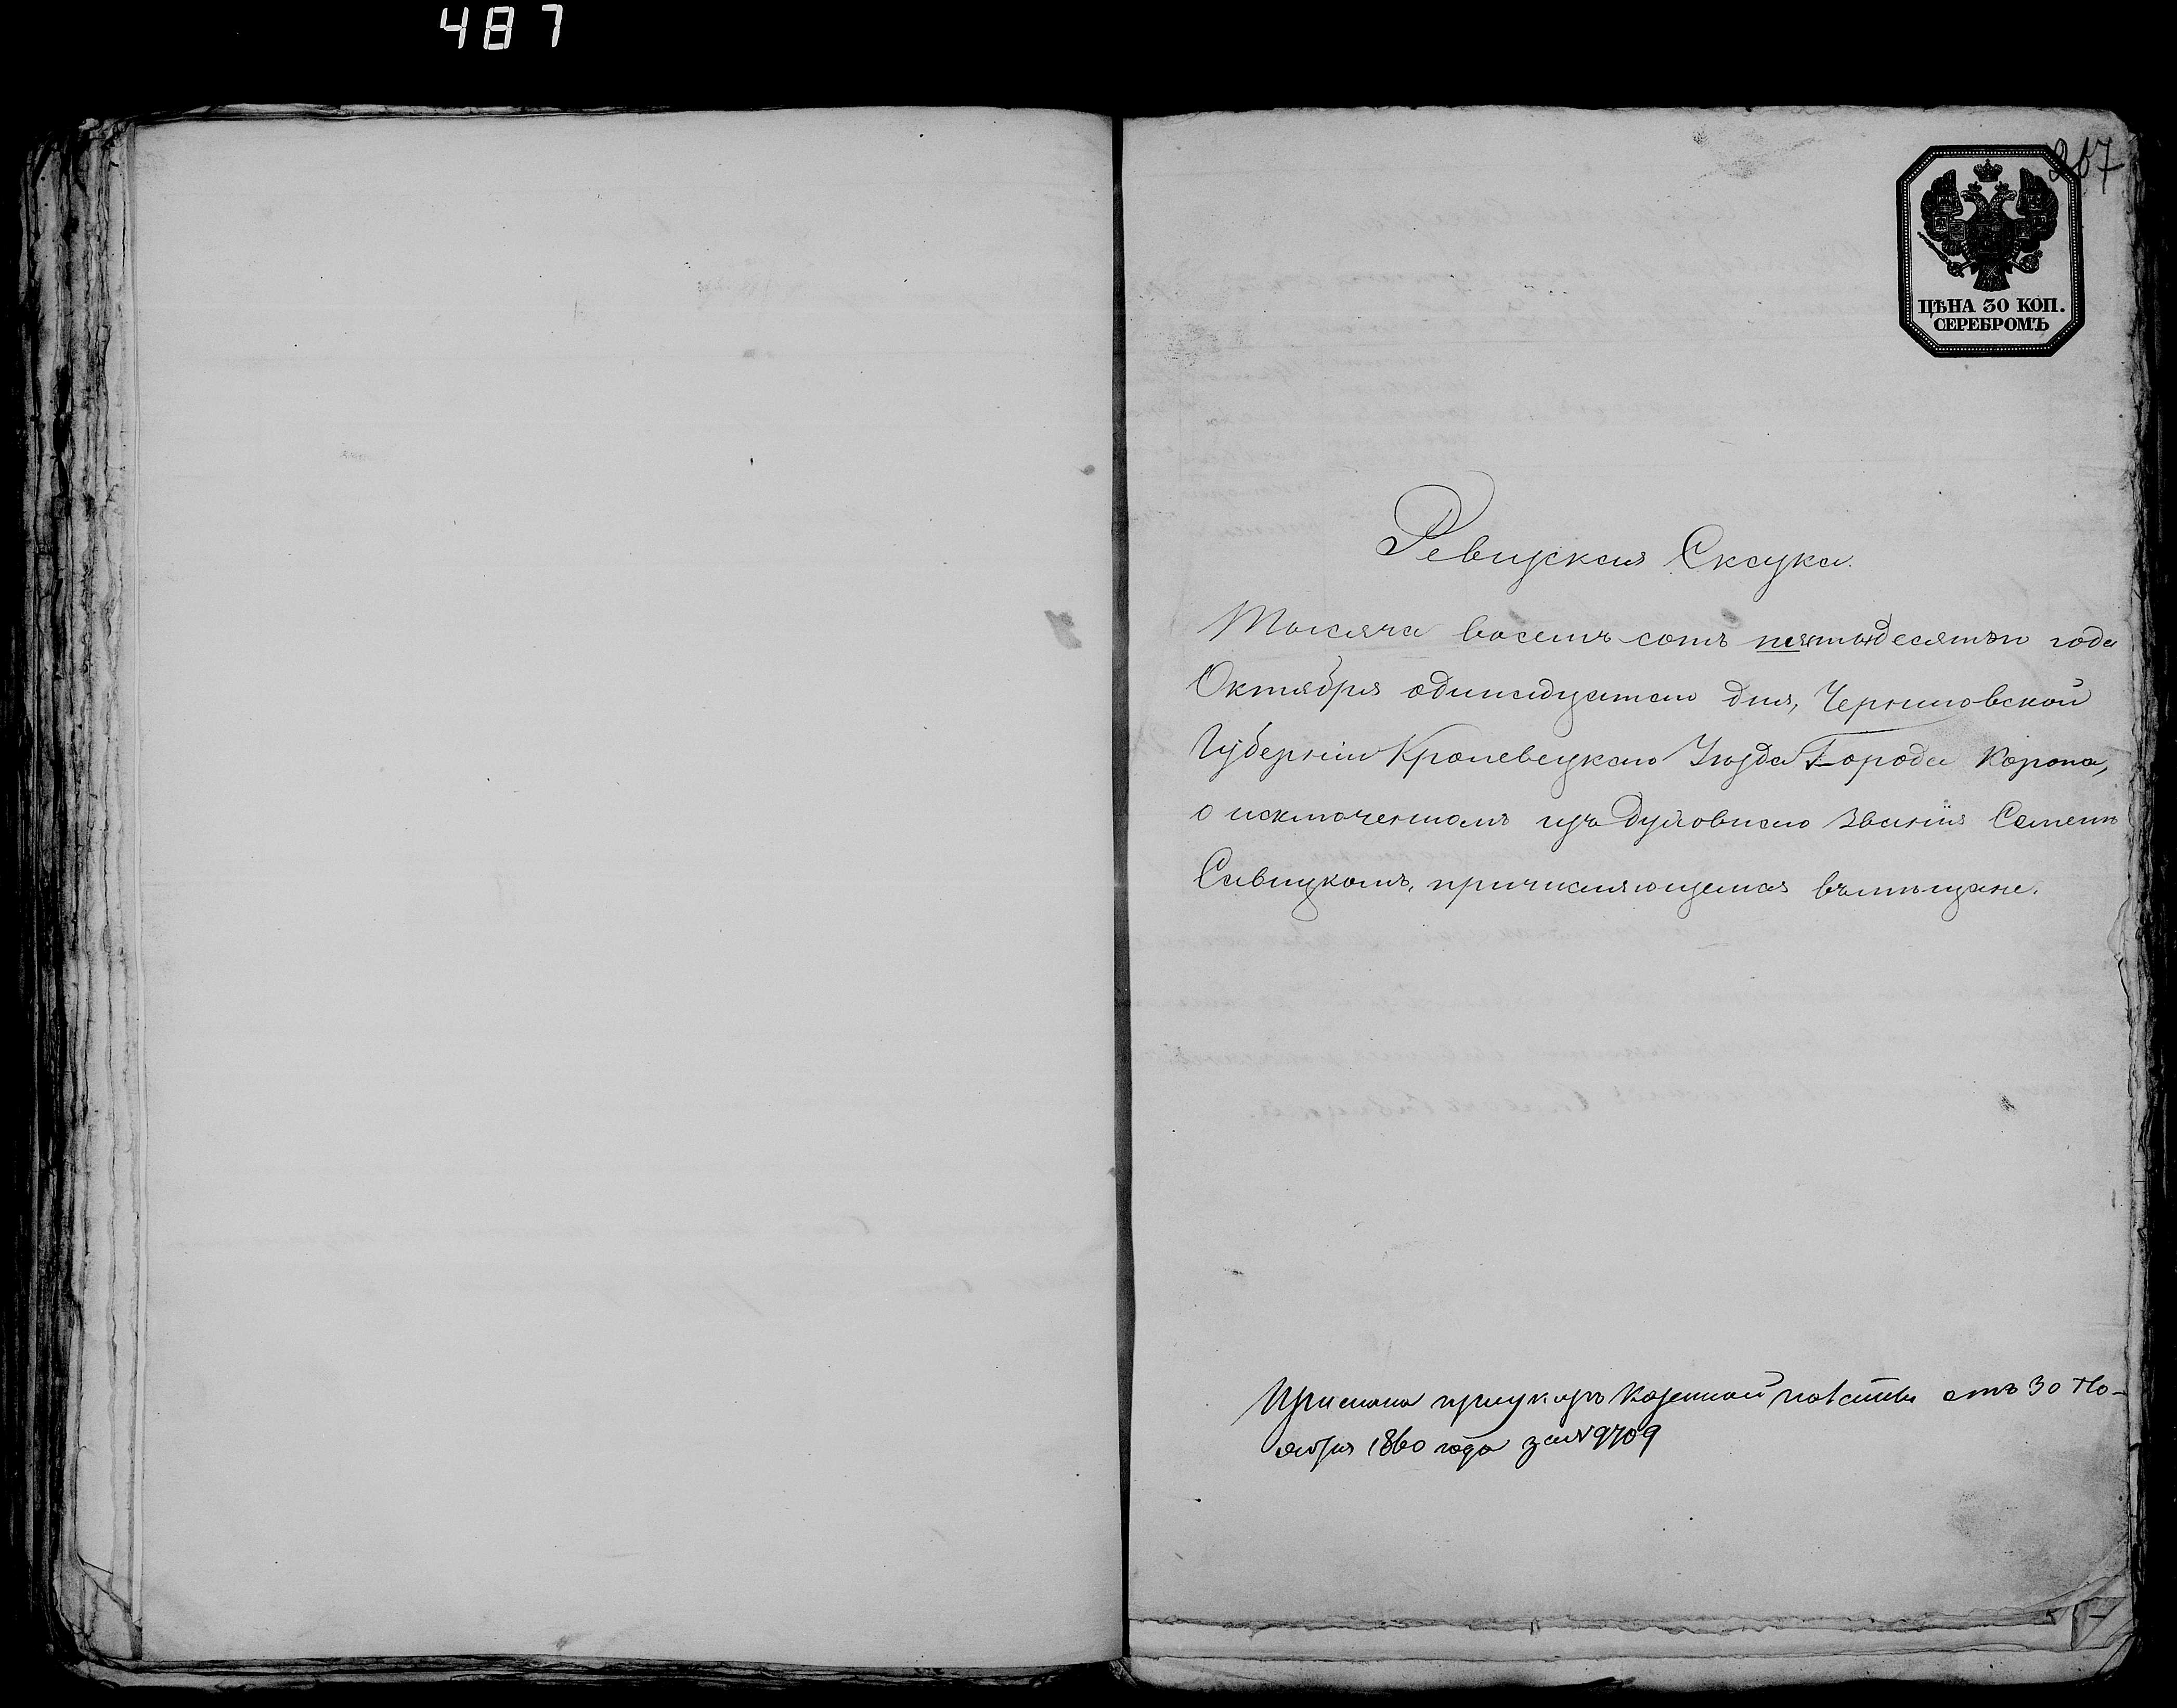 487
267
ЦѢНА 30 КОП.
СЕРЕБРОМЪ
Ревизская Сказка.
Тысяча восемь сотъ пятьдесятъ года
Октября одинадцатаго дня, Черниговской
Губерніи Кролевецкаго Уѣзда Города Коропа,
о исключенномъ изъ Духовнаго званія Семенѣ
Савицкомъ, причисляющемся въ мѣщане.
Прислана при указѣ Казенной палаты отъ 30 Но-
ября 1860 года за № 9709